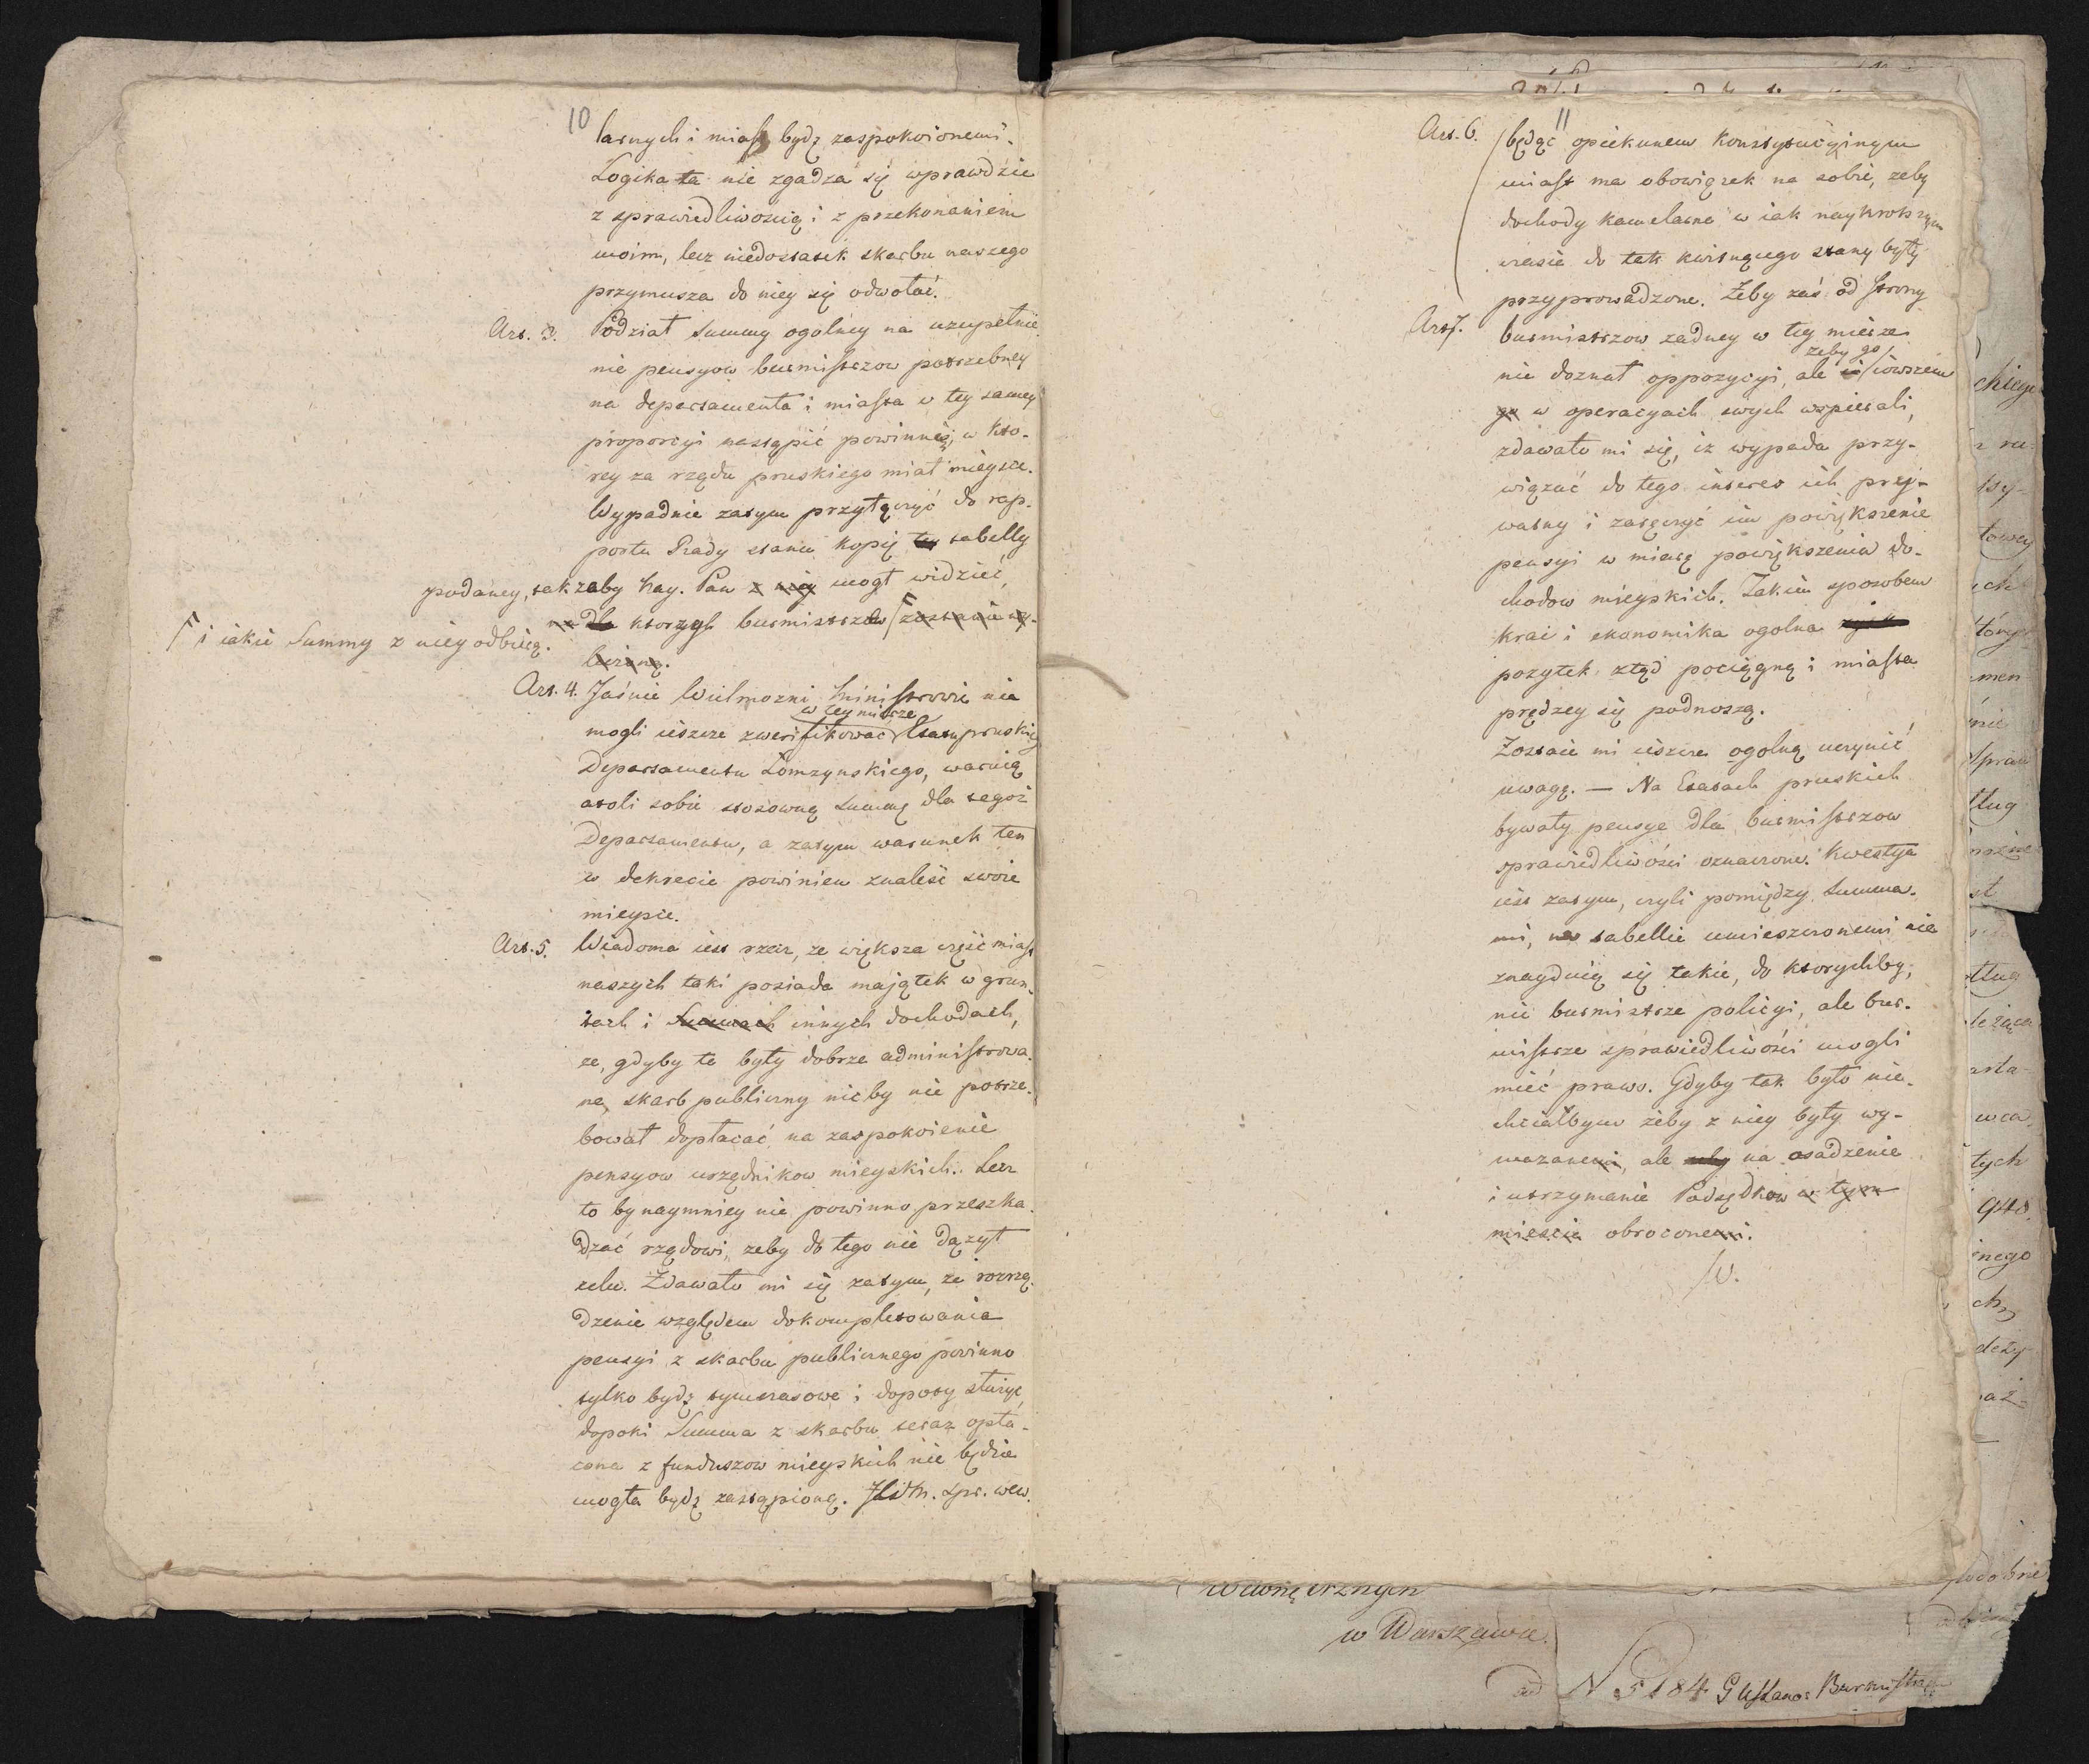 10
larnych i miast bydź zaspokoionemi.
Logika ta nie zgadza się wprawdzie
z sprawiedliwością i z przekonaniem
moim, lecz niedostatek skarbu naszego
przymusza do niey się odwołać.
Art. 3. Podział Summy ogolney na uzupełnie
nie pensyow burmistrzow potrzebney
na departamenta i miasta w tey samey
proporcyi nastąpić powinien, w kto-
rey za rządu pruskiego miał mieysce.
Wypadnie zatym przyłączyć do rap-
portu Rady stanu kopię tey tabelly
podaney, tak zeby Nay. Pan z niey mogł widzieć,
na dla ktorych burmistrzow zostanie wy-
liczoną.
i iakie Summy z niey odbiorą.
Art. 4. Jaśnie Wielmozni Ministrowie nie
w tey mierze
mogli ieszcze zweryfikować Etatu pruskiego
Departamentu Łomzynskiego, waruią
atoli sobie stosowną Summę dla tegoż
Departamentu, a zatym warunek ten
w dekrecie powinien znaleść swoie
mieysce.
Art. 5. Wiadoma iest rzecz, ze większa część miast
naszych taki posiada majątek w grun-
tach i Summach innych dochodach,
ze, gdyby te były dobrze administrowa-
ne, skarb publiczny nicby nie potrze-
bował dopłacać na zaspokoienie
pensyow urzędnikow mieyskich. Lecz
to bynaymniey nie powinno przeszka-
dzać rządowi, zeby do tego nie dązył
celu. Zdawało mi się zatym, ze rozrzą-
dzenie względem dokompletowania
pensyi z skarbu publicznego powinno
tylko bydź tymczasowe i dopoty służyć,
dopoki Summa z skarbu teraz opła-
cona z funduszow mieyskich nie będzie
mogła bydź zastąpioną. JW. M. Spr. wew.
11
Art. 6. będąc opiekunem konstytucyinym
miast ma obowiązek na sobie, zeby
dochody kamelarne w iak naykrotszym
czasie do tak kwitnącego stanu były
przyprowadzone. Żeby zaś od strony
Art. 7. burmistrzow zadney w tey mierze
zeby go
nie doznał oppozycyi, ale iowszem
go w operacyach swych wspierali,
zdawało mi się, iz wypada przy-
wiązać do tego interes ich pry-
watny i zaręczyć im powiększenie
pensyi w miarę powiększenia do-
chodow mieyskich. Takim sposobem
krai i ekonomika ogolna
pozytek ztąd pociągną i miasta
prędzey się podnoszą.
Zostaie mi ieszcze ogolną uczynić
uwagę. — Na Etatach pruskich
bywały pensye dla burmistrzow
sprawiedliwości oznaczone. Kwestya
iest zatym, czyli pomiędzy Summa-
mi, na tabellie umieszczonemi nie
znayduią się takie, do ktorychby,
nie burmistrze policyi, ale bur-
mistrze sprawiedliwości mogli
mieć prawo. Gdyby tak było nie-
chciałbym żeby z niey były wy-
mazanemi, ale zeby na osadzenie
i utrzymanie Podsędkow w tym
mieście obroconemi.
W.
w Warszawie.
ad N 5184 Gustawo: Burmistrz